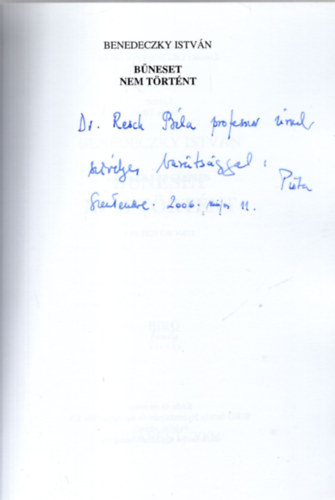 BENEDECZKY ISTVÁN
BŰNESET
NEM TÖRTÉNT
Dr. Resch Béla professor úrnak
szívélyes barátsággal:
Pista
Szentendre. 2006. május 11.